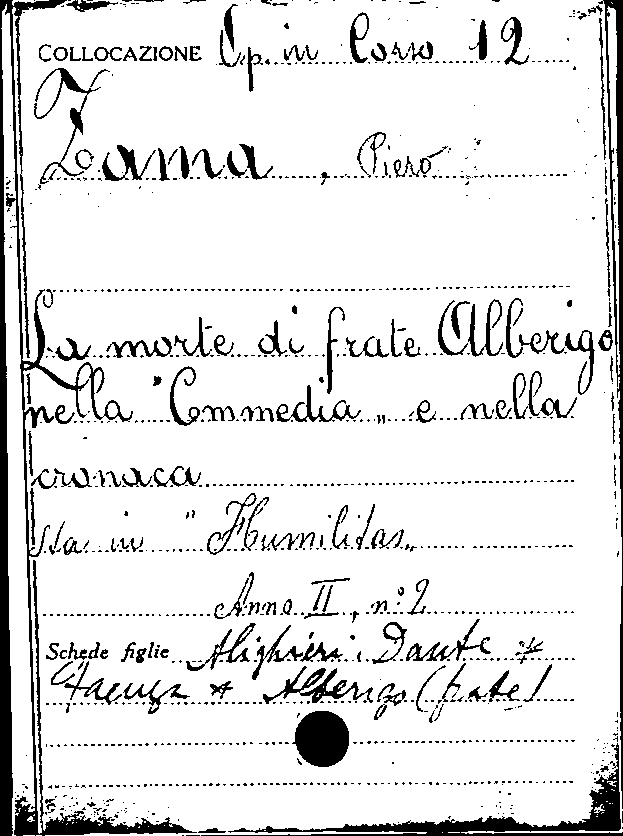 COLLOCAZIONE Op. in Corso 12
Z
Zama, Piero
La morte di frate Alberigo
nella "Commedia" e nella
cronaca
Sta in "Humilitas"
Anno II, n° 2
Schede figlie Alighieri, Dante *
Faenza * Alberigo (frate)